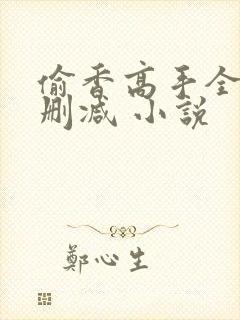 偷香高手全
删减 小説
鄭心生